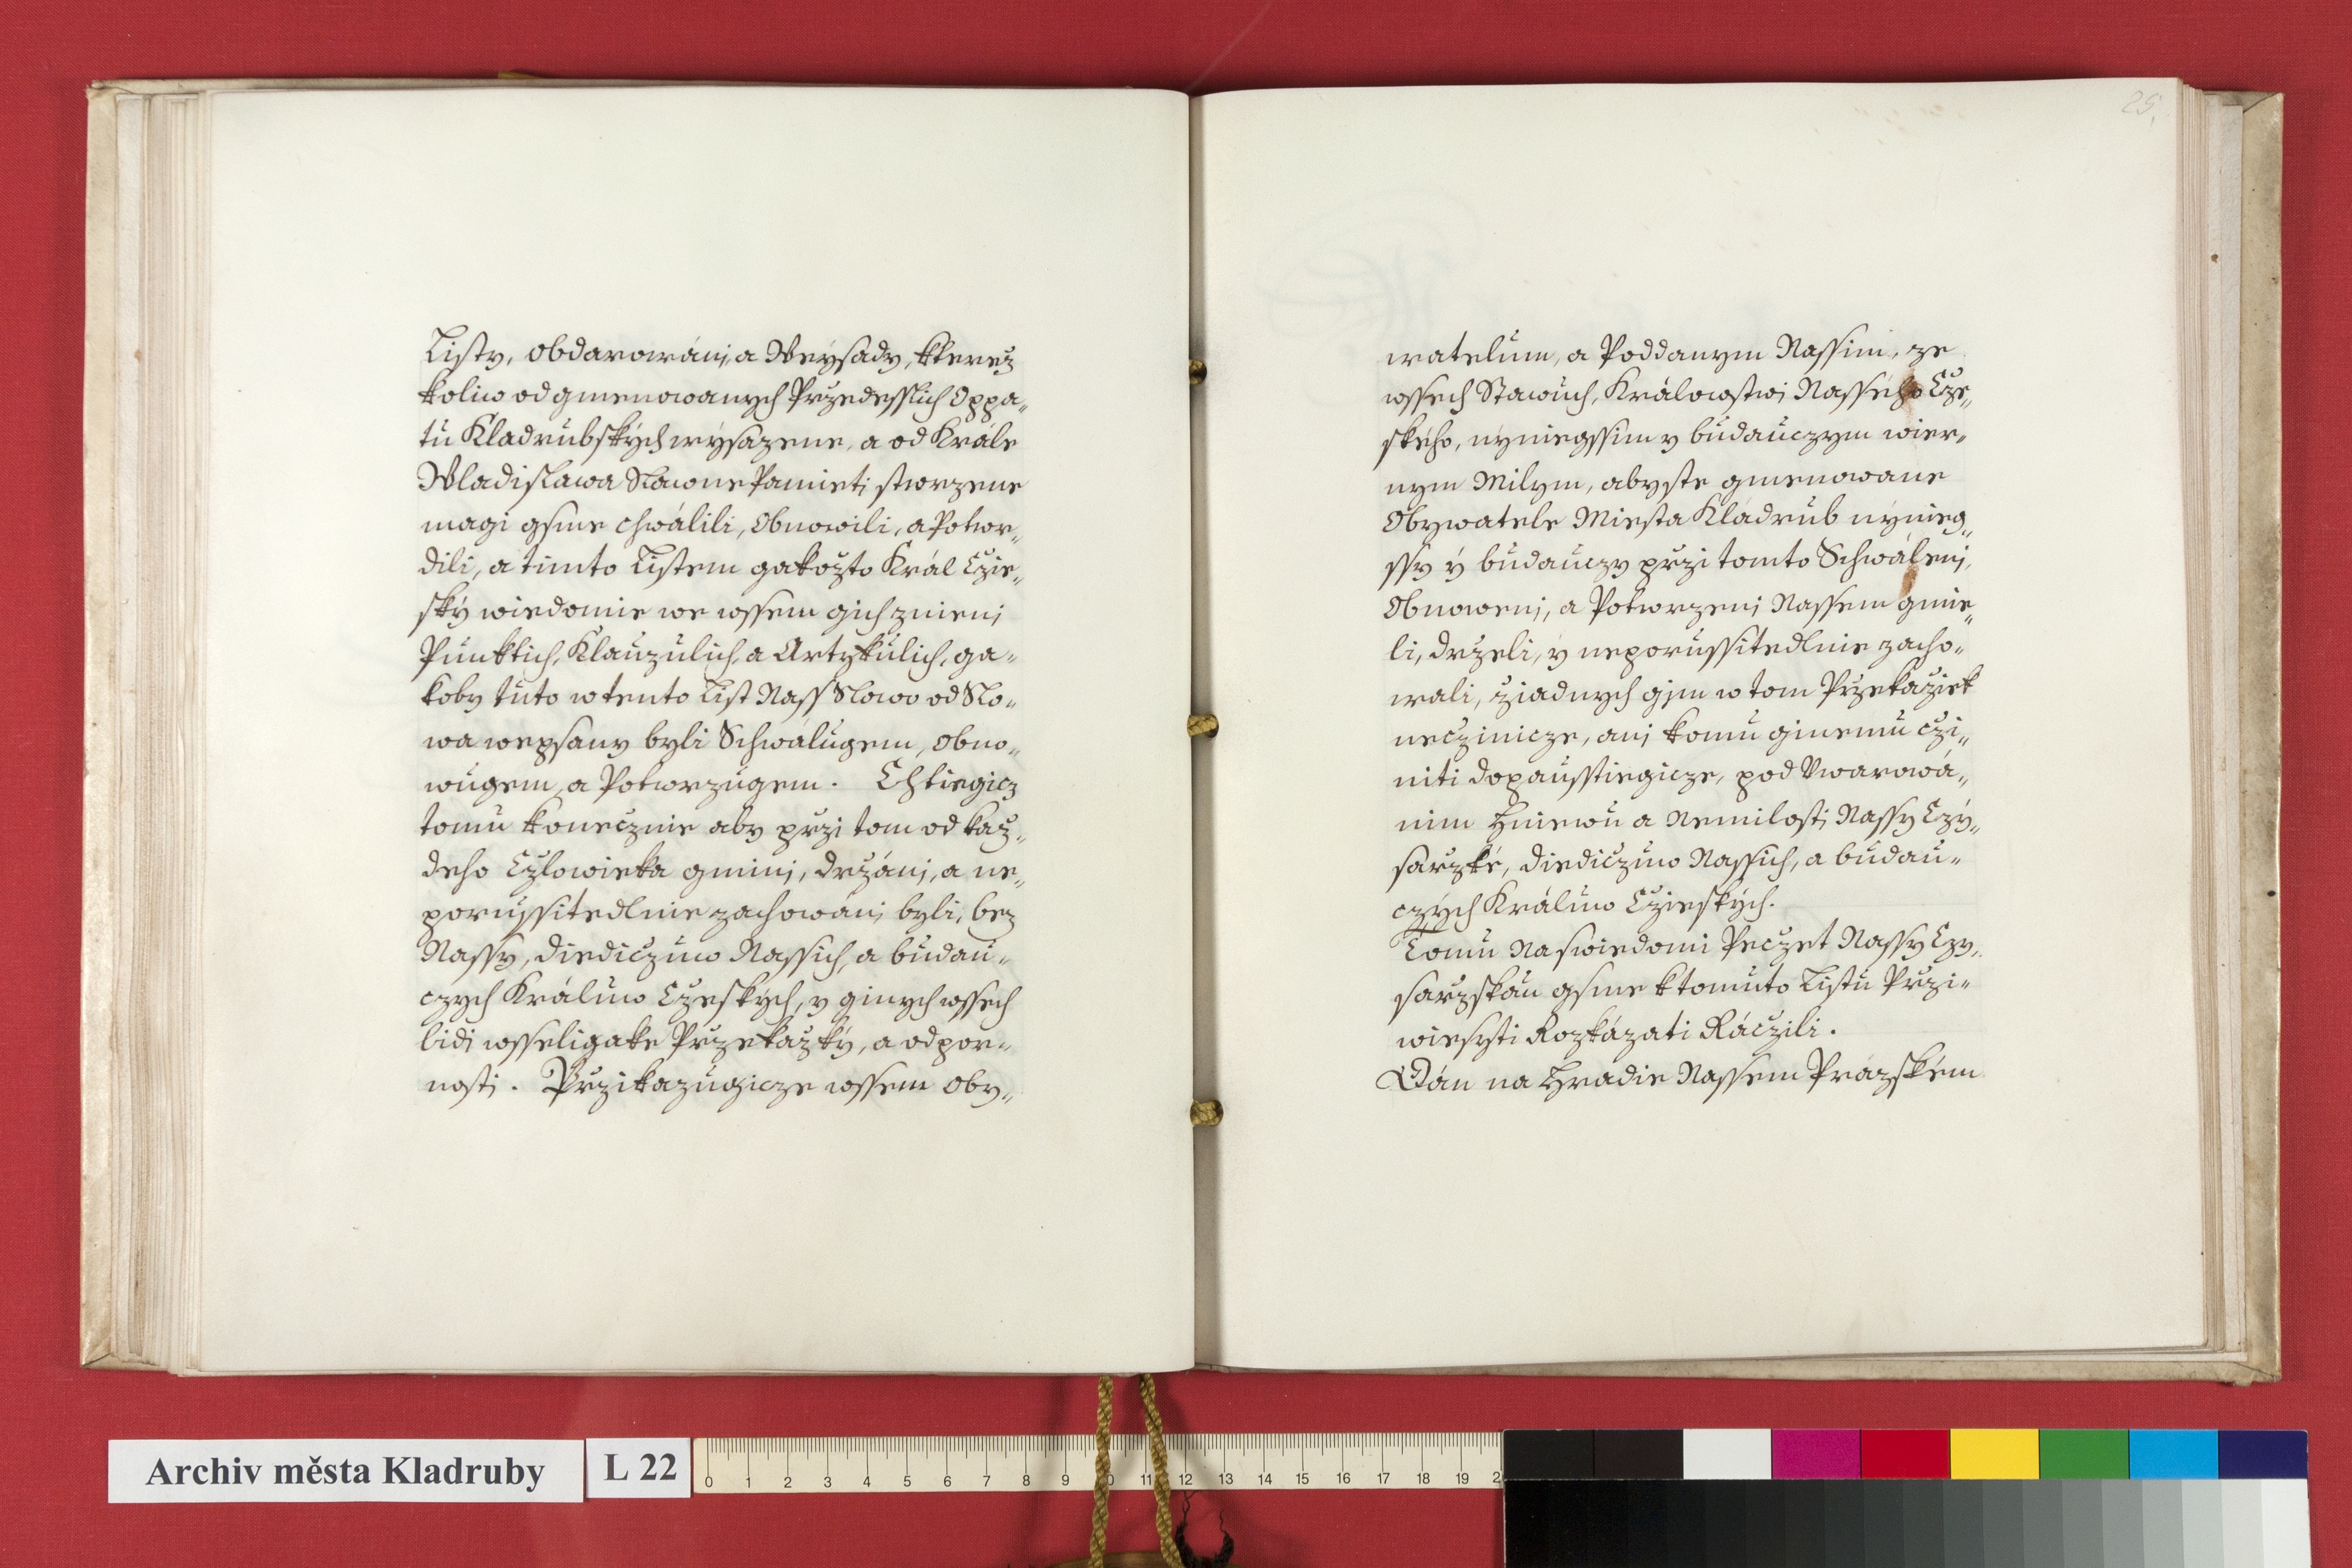 Listy, obdarowánj, a Weýsady, kterez
koliw od gmenowanych Przedesslich Oppa„
tu Kladrubských wýsazene, a od Krále
Wladislawa Slawne Pamieti stwrzene
magi gsme chwálili, Obnowili, a Potwr„
dili, a timto Listem gakožto Král Czie„
ský wiedomie we wssem gich znienj
Punktich, Klauzulich, a Artykulich, ga„
koby tuto w tento List Nass Slowo od Slo„
wa wepsany byli Schwálugem, Obno„
wugem, a Potwrzugem. Chtiegicz
tomu konecznie aby przi tom od kaz„
deho Czlowieka gminj, držánj, a ne„
porussitedlnie zachowánj byli, bez
Nassy, Diedičzuw Nassich, a budau„
czych Králuw Czeských, y ginych wssech
lidi wsseligake Przekažký, a odpor„
nosti. Przikazugicze wssem oby„
watelum, a Poddanym Nassim, ze
wssech Stawuch, Králowstwj Nassého Cze„
ského, nýniegssim y budauczym wier„
nym Milym, abyste gmenowane
Obywatele Miesta Kládrub nýnieg„
ssy ý budauczy przi tomto Schwálenj,
Obnowenj, a Potwrzenj Nassem gmie„
li, drželi, y neporussitedlnie zacho„
wali, žiadnych gjm w tom Przekažiek
neczinicze, anj komu ginemu czi„
niti dopausstiegicze, pod Uwarowá„
nim Hniewu a Nemilosti Nassy Czý„
sarzké, Diedičzuw Nassich, a budau„
czých Králuw Czieských.
Tomu Na swiedomi Peczet Nassy Czy„
sarzskau gsme k tomuto Listu Przi„
wiesyti Rozkázati Ráczili.
Dán na Hradie Nassem Prázském
25.
Archiv města Kladruby
L 22
0 1 2 3 4 5 6 7 8 9 10 11 12 13 14 15 16 17 18 19 2